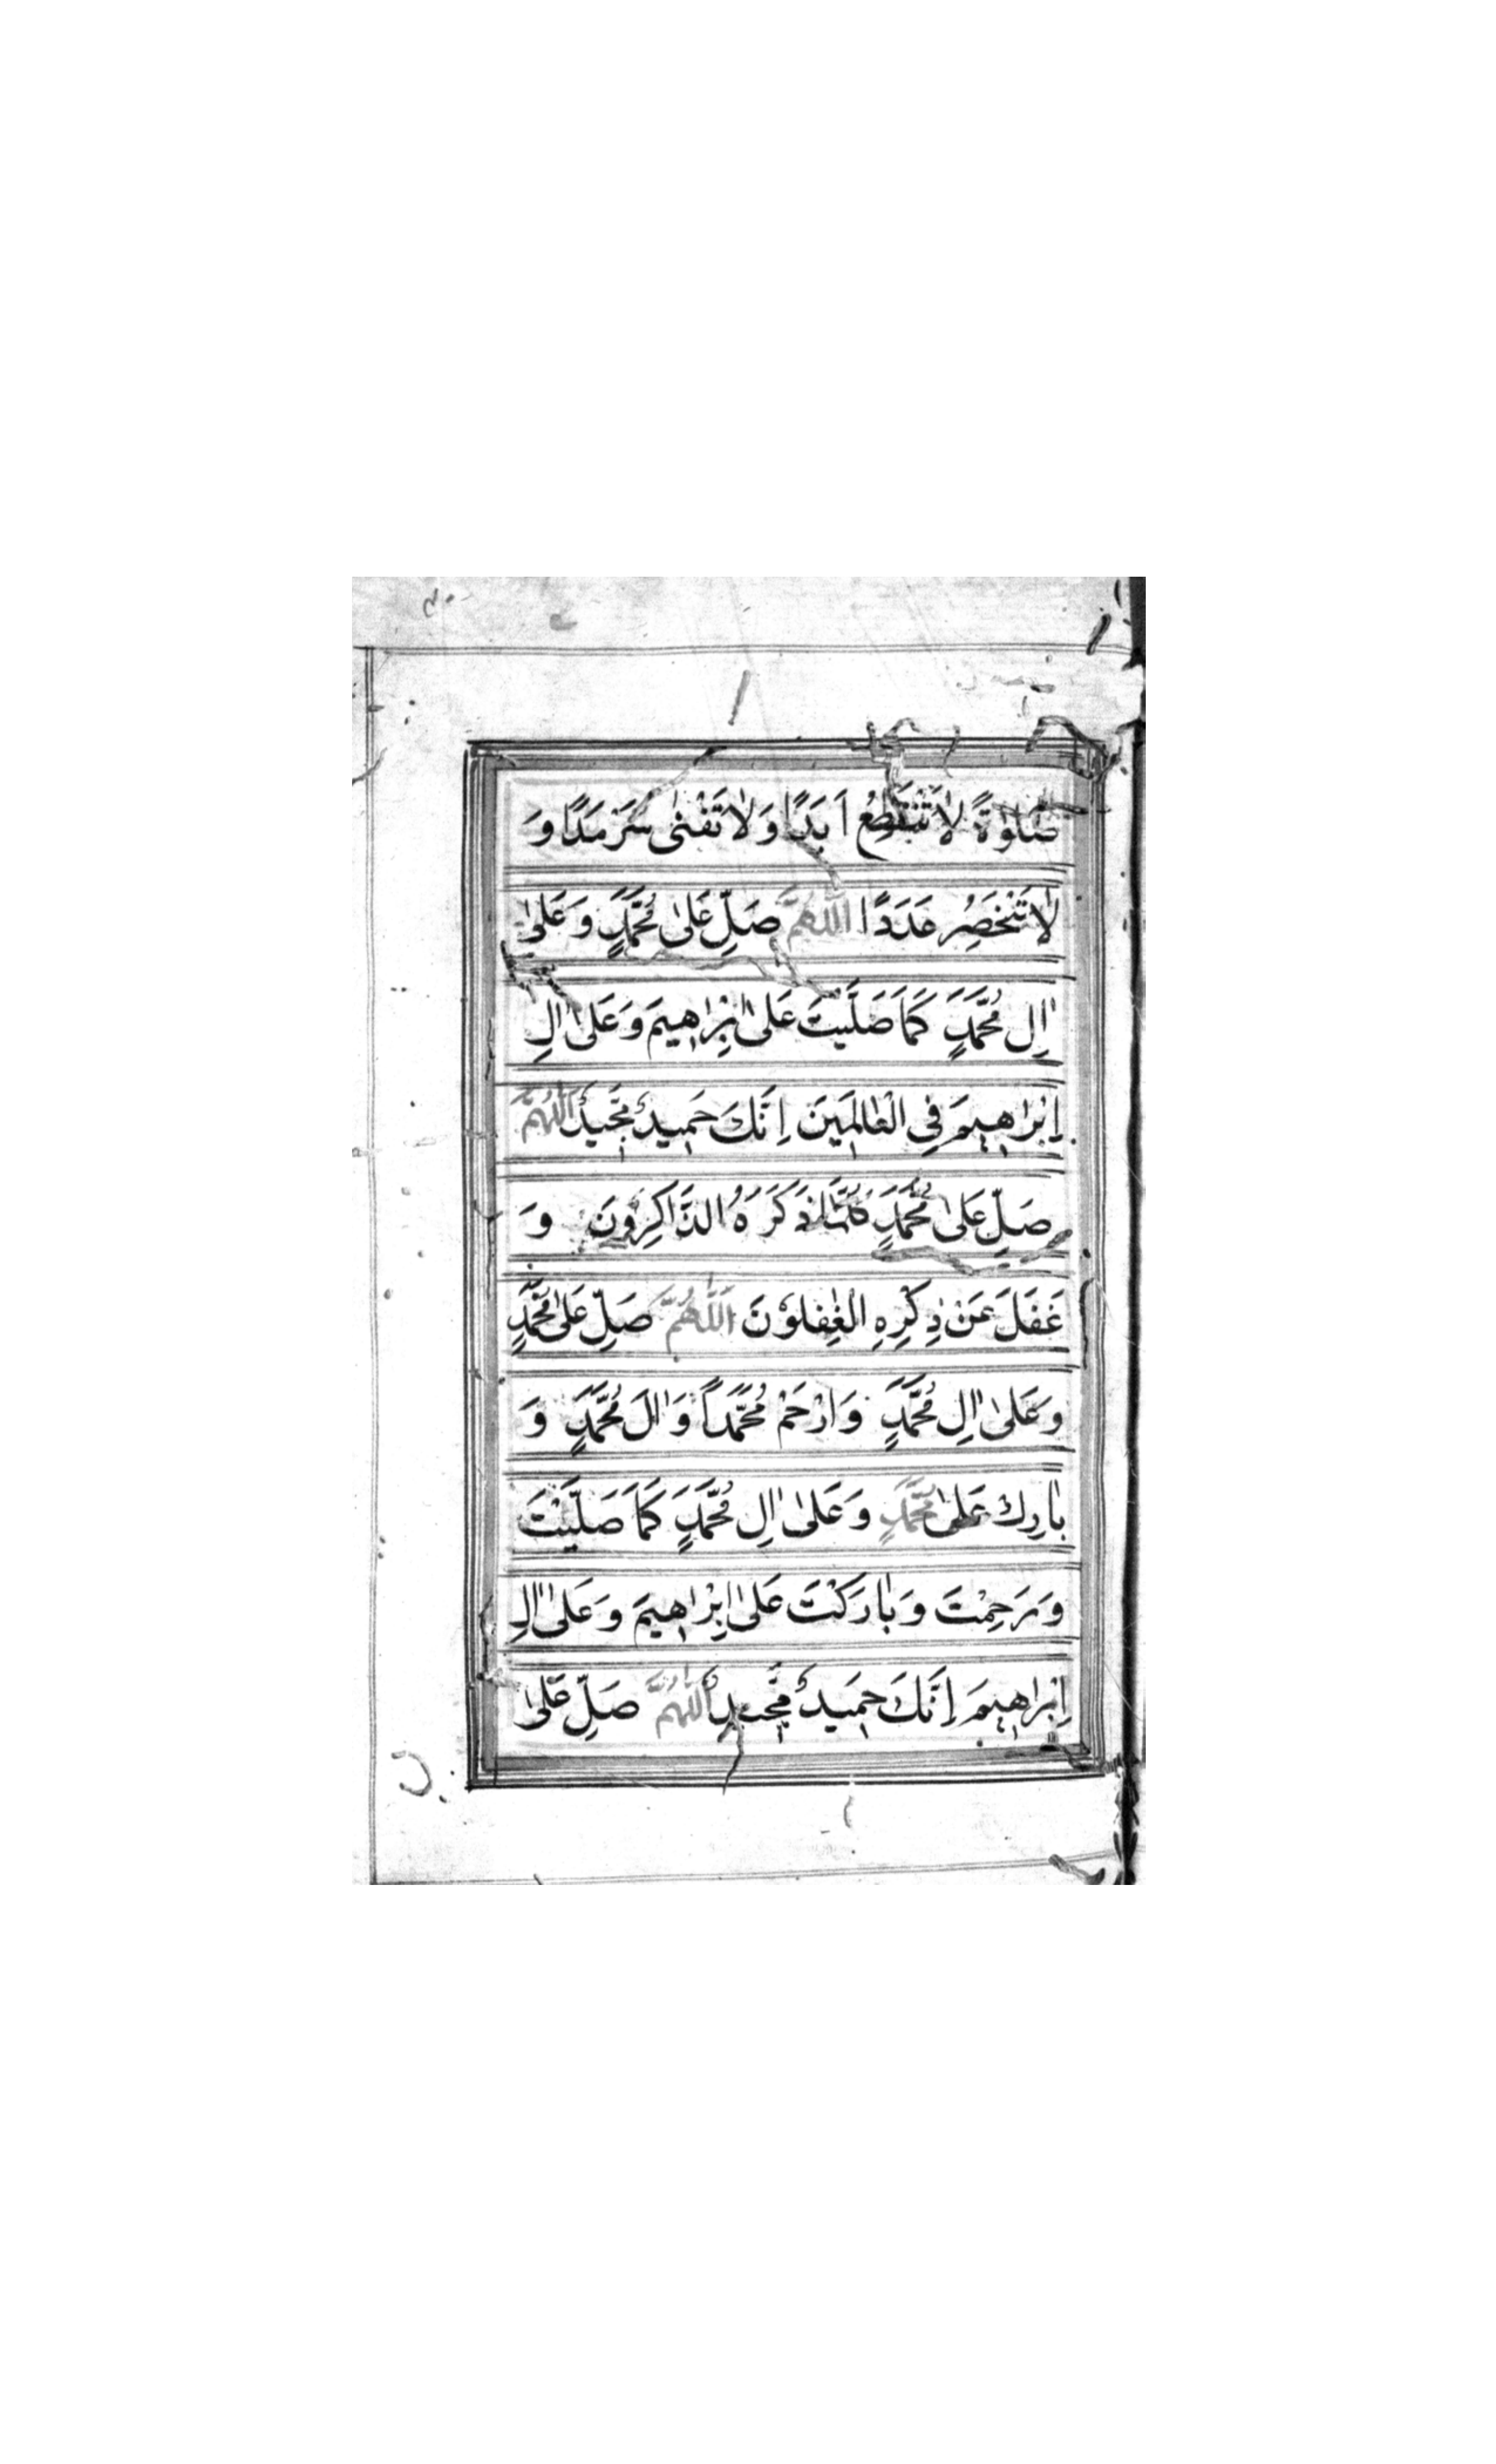 صَلٰوةً لَاتَنْقَطِعُ اَبَدًا وَلَاتَفْنٰى سَرْمَدًا وَ
لَاتَنْحَصِرُ عَدَدًا اَللّٰهُمَّ صَلِّ عَلٰى مُحَمَّدٍ وَعَلٰى
اٰلِ مُحَمَّدٍ كَمَا صَلَّيْتَ عَلٰى اِبْرٰاهِيمَ وَعَلٰى اٰلِ
اِبْرٰاهِيمَ فِى الْعٰالَمِينَ اِنَّكَ حَمِيدٌ مَجِيدٌ اَللّٰهُمَّ
صَلِّ عَلٰى مُحَمَّدٍ كُلَّمَا ذَكَرَهُ الذَّاكِرُونَ وَ
غَفَلَ عَنْ ذِكْرِهِ الْغٰفِلُوْنَ اَللّٰهُمَّ صَلِّ عَلٰى مُحَمَّدٍ
وَعَلٰى اٰلِ مُحَمَّدٍ وَارْحَمْ مُحَمَّداً وَاٰلَ مُحَمَّدٍ وَ
بٰارِكْ عَلٰى مُحَمَّدٍ وَعَلٰى اٰلِ مُحَمَّدٍ كَمَا صَلَّيْتَ
وَرَحِمْتَ وَبٰارَكْتَ عَلٰى اِبْرٰاهِيمَ وَعَلٰى اٰلِ
اِبْرٰاهِيمَ اِنَّكَ حَمِيدٌ مَجِيدٌ اَللّٰهُمَّ صَلِّ عَلٰى